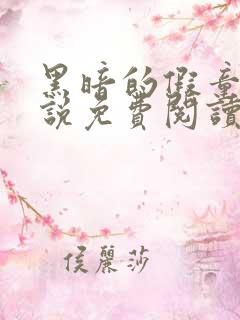 黑暗的假童
說免費閱讀
侯麗莎